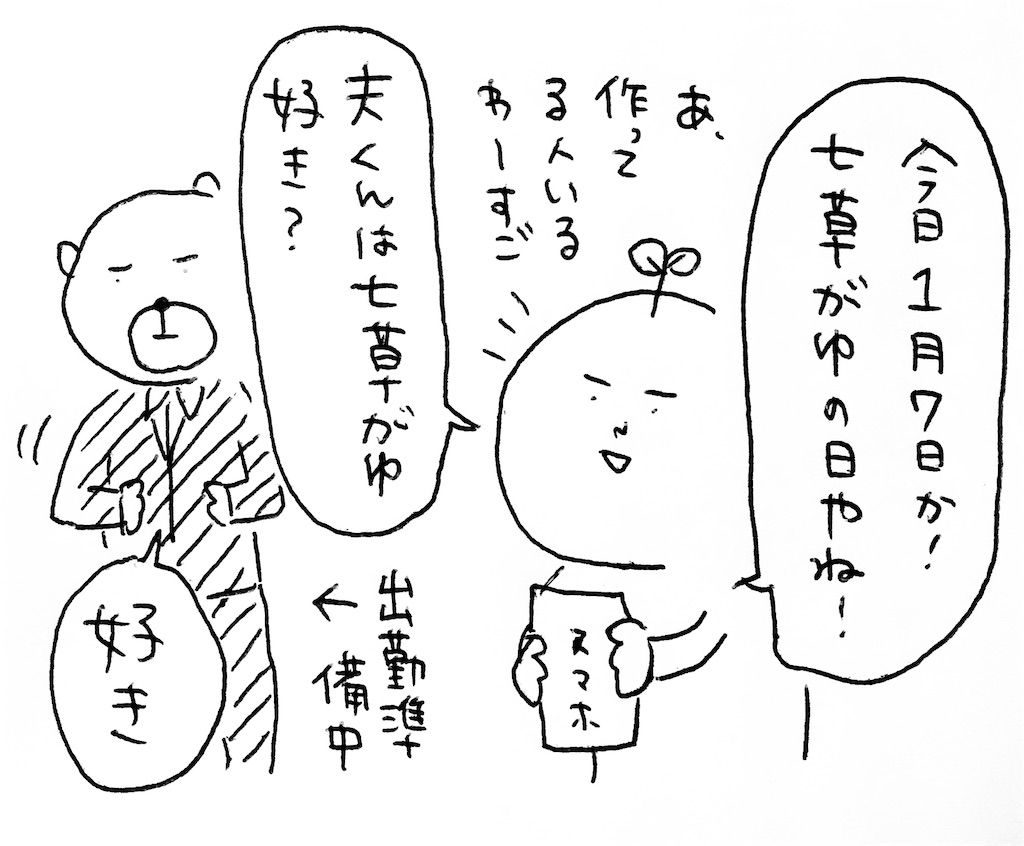 今日1月7日か!
七草がゆの日やね!
あ、
作って
る人いる
わーすご
スマホ
夫くんは七草がゆ
好き?
出勤準
備中
←
好き